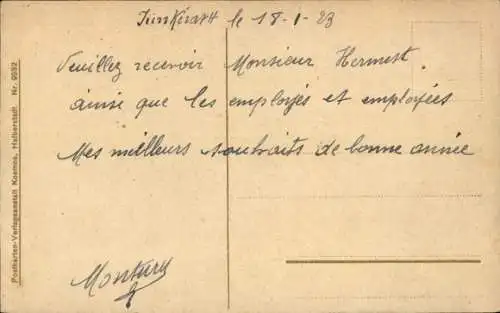 Jünkerath le 18-1-23
Veuillez recevoir Monsieur Hermest.
ainsi que les employés et employées
Mes meilleurs souhaits de bonne année
Postkarten-Verlagsanstalt Kosmos, Halberstadt. Nr. 9992